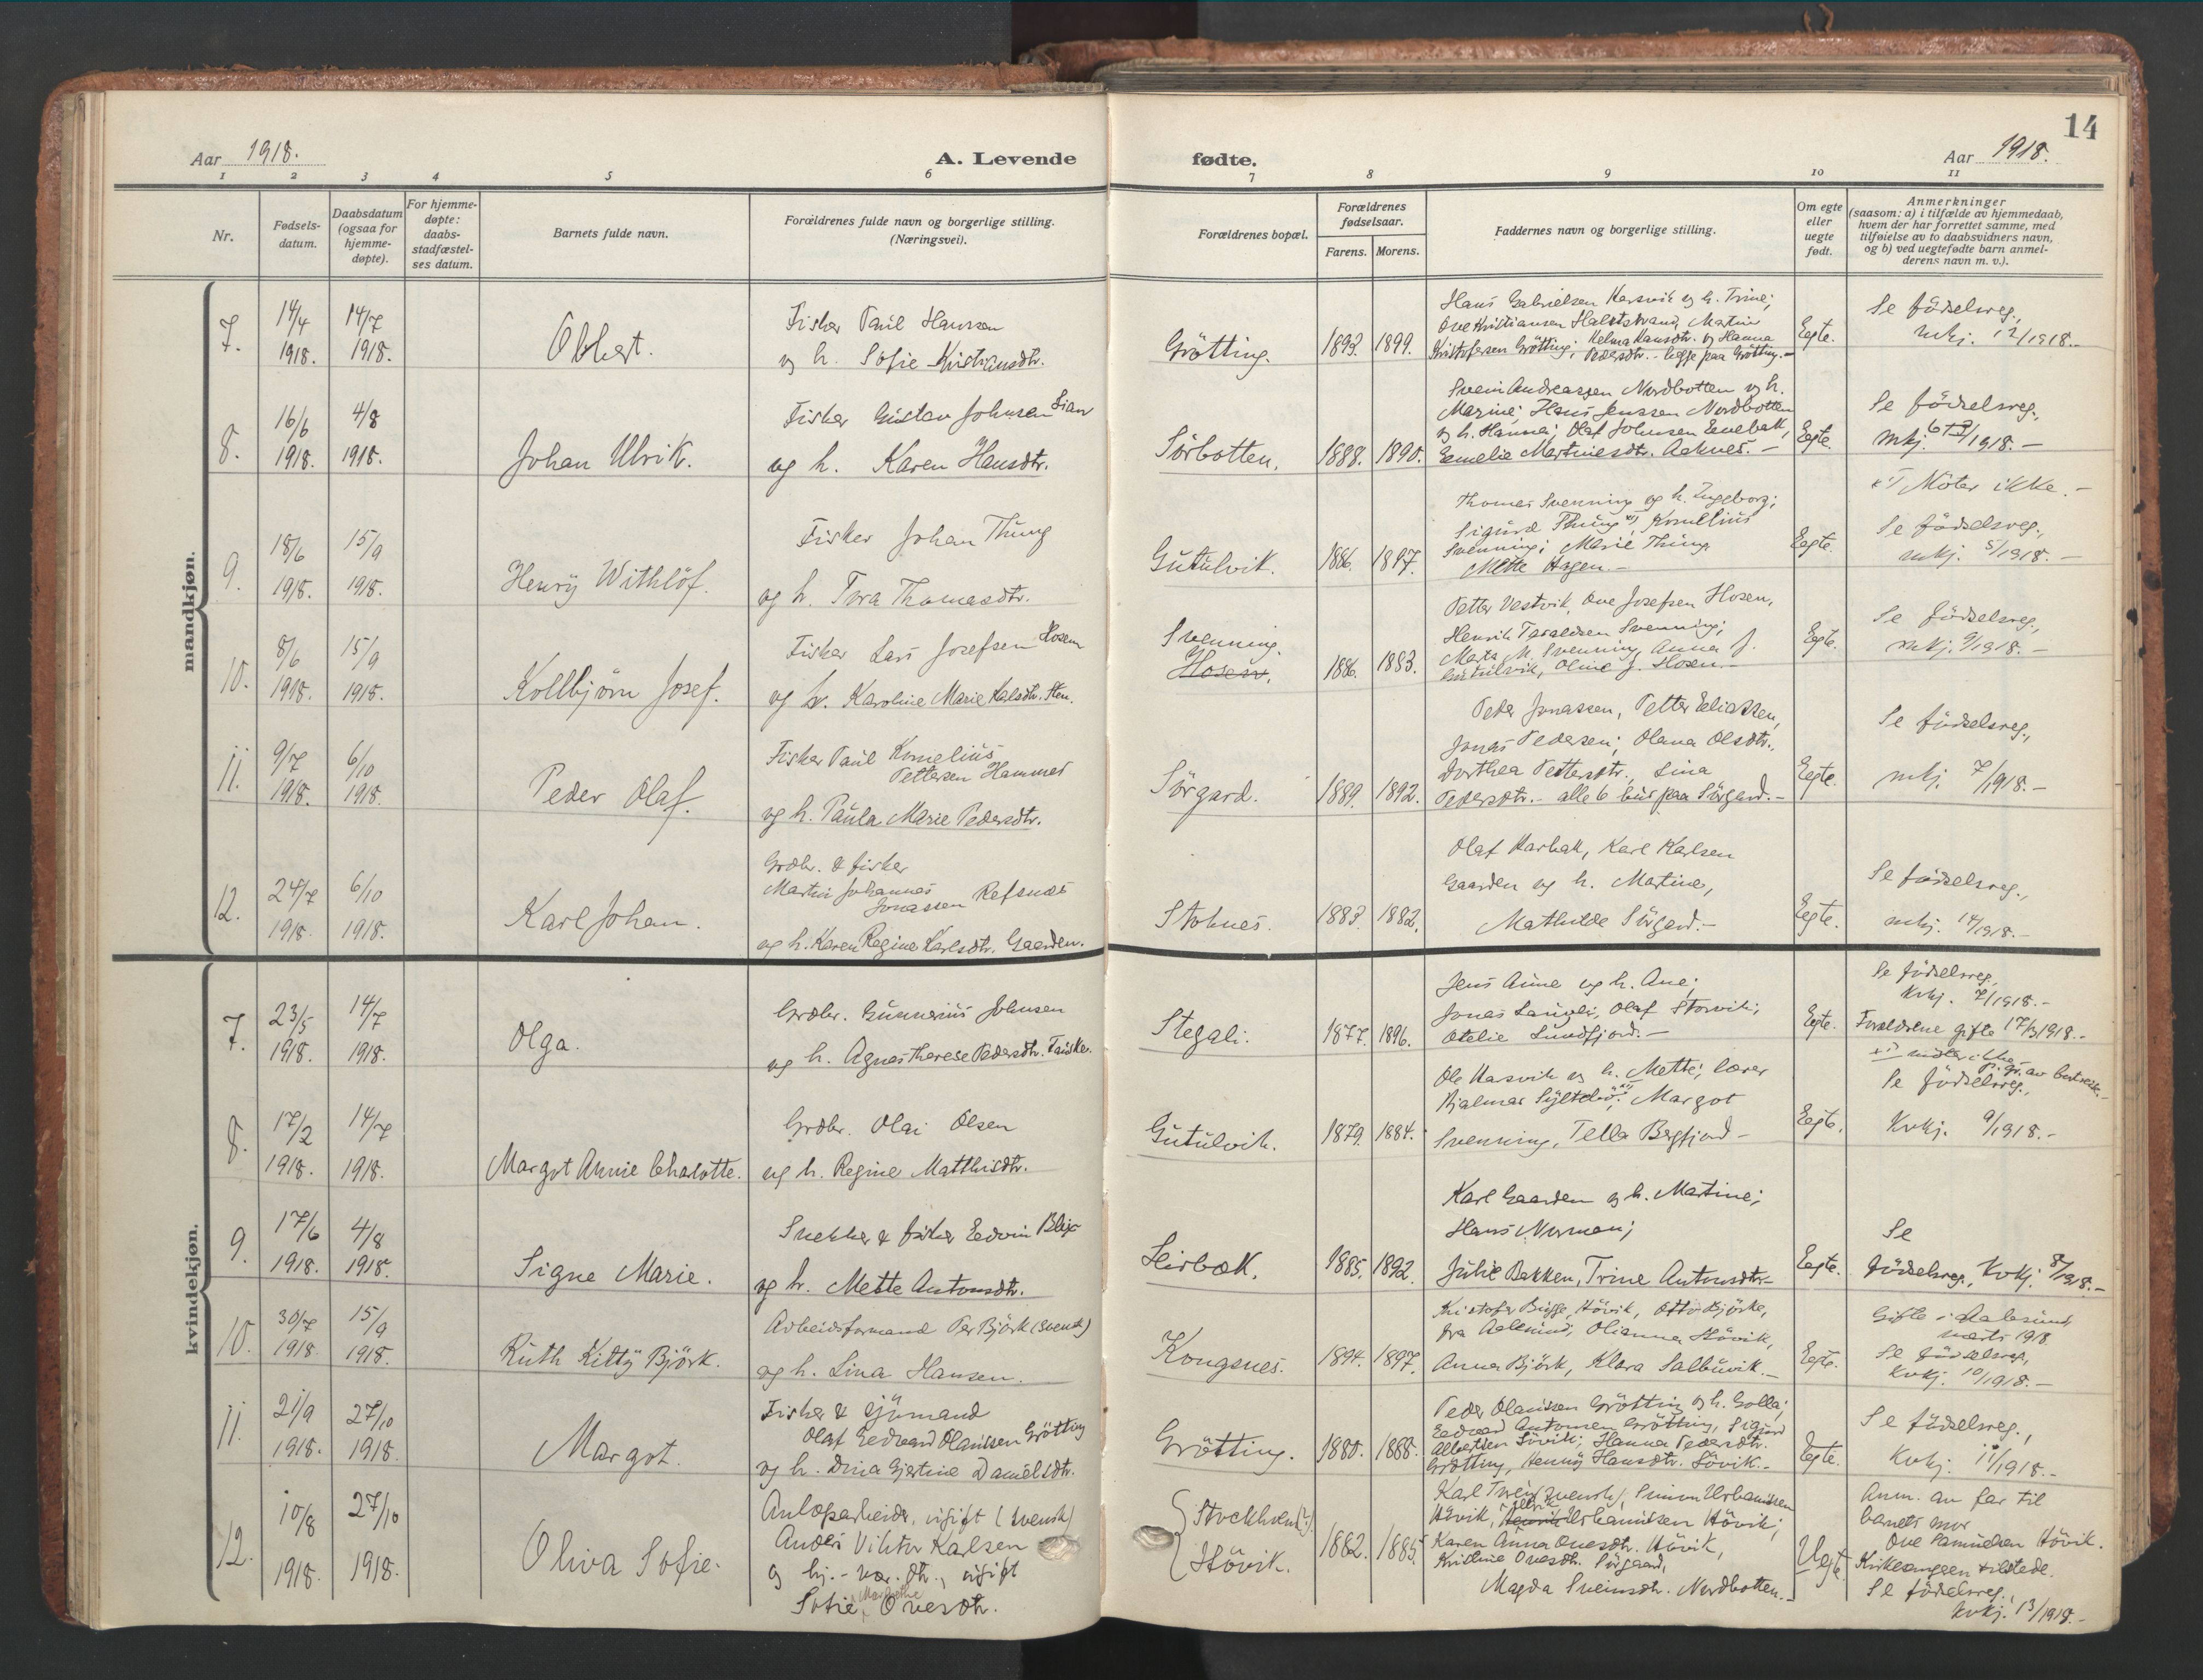 14
Aar 1918.
A. Levende fødte.
Aar 1918.
1 2 3 4 5 6 7 8 9 10 11
Nr.
Fødsels-
datum.
Daabsdatum
(ogsaa for
hjemme-
døpte).
For hjemme-
døpte:
daabs-
stadfæstel-
ses datum.
Barnets fulde navn.
Forældrenes fulde navn og borgerlige stilling.
(Næringsvei).
Forældrenes bopæl.
Forældrenes
fødselsaar.
Farens. Morens.
Faddernes navn og borgerlige stilling.
Om egte
eller
uegte
født.
Anmerkninger
(saasom: a) i tilfælde av hjemmedaab,
hvem der har forrettet samme, med
tilføielse av to daabsvidners navn,
og b) ved uegtefødte barn anmel-
derens navn m. v.).
mandkjøn.
7.
14/4
1918.
14/7
1918.
Obbert.
Fisker Paul Hanssen
og h. Sofie Kristiansdtr.
Grötting.
1893. 1899.
Hans Gabrielsen Karsvik og h. Trine;
Ove Kristiansen Halststrand, Martin
Kristofersen Grötting; Helma Hansdtr. og Hanna
Pedersdtr. - begge paa Grötting. -
Egte.
Se födselsreg.,
mkj. 12/1918. -
8.
16/6
1918.
4/8
1918.
Johan Ulrik.
Fisker Gustav Johnsen Lian
og h. Karen Hansdtr.
Sörbotten.
1888. 1890.
Svein Andreassen Nordbotten og h.
Marine; Hans Jenssen Nordbotten
og h. Hanna; Olaf Johnsen
Emelie Martinesdtr. Aaknes. -
Egte.
Se födselsreg.,
mkj. /1918. -
x) Möter ikke. -
9.
18/6
1918.
15/9
1918.
Henry Withlöf.
Fisker Johan Thung
og h. Tora Thomasdtr.
Gutulvik.
1886. 1897.
Thomas Svenning og h. Ingeborg;
Sigurd Thung x), Kornelius
Svenning; Marie Thung
Mette Aagen. -
Egte.
Se födselsreg.,
mkj. 5/1918. -
10.
8/6
1918.
15/9
1918.
Kollbjörn Josef.
Fisker Lars Josefsen Hosen
og h. Karoline Marie Kalsdtr. Sten.
Svenning.
Hosen.
1886. 1883.
Petter Vestvik, Ove Josefsen Hosen,
Henrik Taraldsen Svenning;
Marta M. Svenning, Anna J.
Gutulvik, Oline J. Hosen. -
Egte.
Se födselsreg.,
mkj. 9/1918. -
11.
9/7
1918.
6/10
1918.
Peder Olaf.
Fisker Paul Kornelius
Pettersen Hammer
og h. Paula Marie Pedersdtr.
Sörgard.
1889. 1892.
Peder Jonassen, Petter Eliassen,
Jonas Pedersen; Olena Olsdtr.,
Dorthea Pettersdtr., Lina
Pedersdtr. - alle 6 bus paa Sörgard. -
Egte.
Se födselsreg.,
mkj. 7/1918. -
12.
24/7
1918.
6/10
1918.
Karl Johan.
Grdbr. & fisker
Martin Johannes
Jonassen Refsnes
og h. Karen Regine Karlsdtr. Gaarden.
Stoknes.
1883. 1882.
Olaf Harbak, Karl Karlsen
Gaarden og h. Martine,
Mathilde Sörgard. -
Egte.
Se födselsreg.,
mkj. 14/1918. -
kvindekjøn.
7.
23/5
1918.
14/7
1918.
Olga.
Grdbr. Gunnerius Johnsen
og h. Agnes Therese Pedersdtr. Fauske.
Stegali.
1877. 1896.
Jens Aune og h. Ane;
Jonas Laugli, Olaf Storvik;
Otelie Sundfjord. -
Egte.
Se födselsreg.,
kvkj. 7/1918. -
Forældrene gifte 17/3 1918. -
8.
17/2
1918.
14/7
1918.
Margot Annie Charlotte.
Grdbr. Olai Olsen
og h. Regine Matthisdtr.
Gutulvik.
1879. 1884.
Ole Karsvik og h. Mette; lærer
Hjalmar x), Margot
Svenning, Tella Bergfjord -
Egte.
x) möter ikke
Se födselsreg.,
kvkj. 9/1918. -
9.
17/6
1918.
4/8
1918.
Signe Marie.
Snekker & fisker Edvin Blix
og h. Mette Antonsdtr.
Leirbæk.
1885. 1892.
Karl Gaarden og h. Martine;
Hans Norman;
Julie Bakken, Trine Antonsdtr. -
Egte.
Se
födselsreg., kvkj. 8/1918. -
10.
30/7
1918.
15/9
1918.
Ruth Kitty Björk.
Arbeidsformand Per Björk (svensk)
og h. Lina Hansen.
Kongsnes.
1894. 1897.
Kristofer Bugge, Hövik, Otto Björke,
fra Aalesund, Olianna Hövik,
Anna Björk, Klara Salbuvik. -
Egte.
Gifte i Aalesund
marts 1918
Se födselsreg.,
kvkj. 10/1918. -
11.
21/9
1918.
27/10
1918.
Margot.
Fisker & sjömand
Olaf Edvard Olaussen Grötting
og h. Dina Gjertine Danielsdtr.
Grötting.
1880. 1888.
Peder Olaussen Grötting og h. Golla;
Edvard Antonsen Grötting, Sigurd
Albertsen Sövik; Hanna Pedersdtr.
Grötting, Henny Hansdtr. Sövik. -
Egte.
Se födselsreg.,
kvkj. 11/1918. -
12.
10/8
1918.
27/10
1918.
Oliva Sofie.
Anlægsarbeider, ugift (svensk)
Anders Viktor Karlsen
og hj.-vær. dtr., ugift
Sofie Margrethe Ovesdtr.
Stockholm(?).
Hövik.
1882. 1885.
Karl (svensk), Simon Urbanussen
Hövik, Ulrik Urbanussen Hövik;
Karen Anna Ovesdtr. Hövik,
Kristine Ovesdtr. Sörgaard,
Magda Sveinsdtr. Nordbotten. -
Uegte.
Anm. av far til
barnets mor
Ove Samuelsen Hövik.
Kirkesangeren tilstede.
Se födselsreg.,
kvkj. 13/1918. -